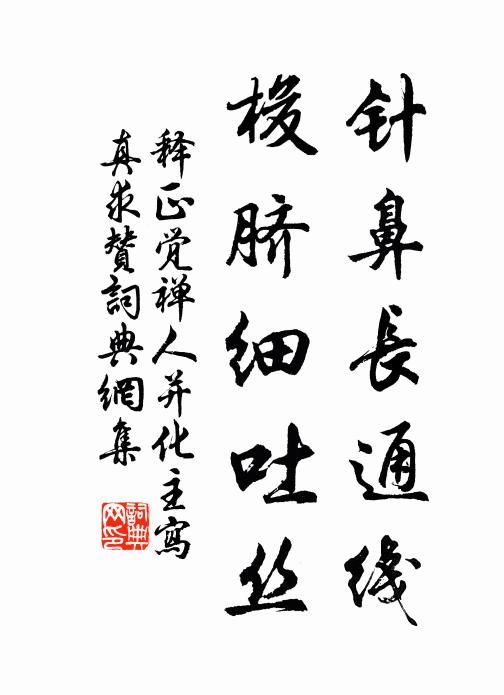 针鼻長通线
梭脐细吐丝
释正觉禅人并化主寫
真求赞詞典網集
詞典网印